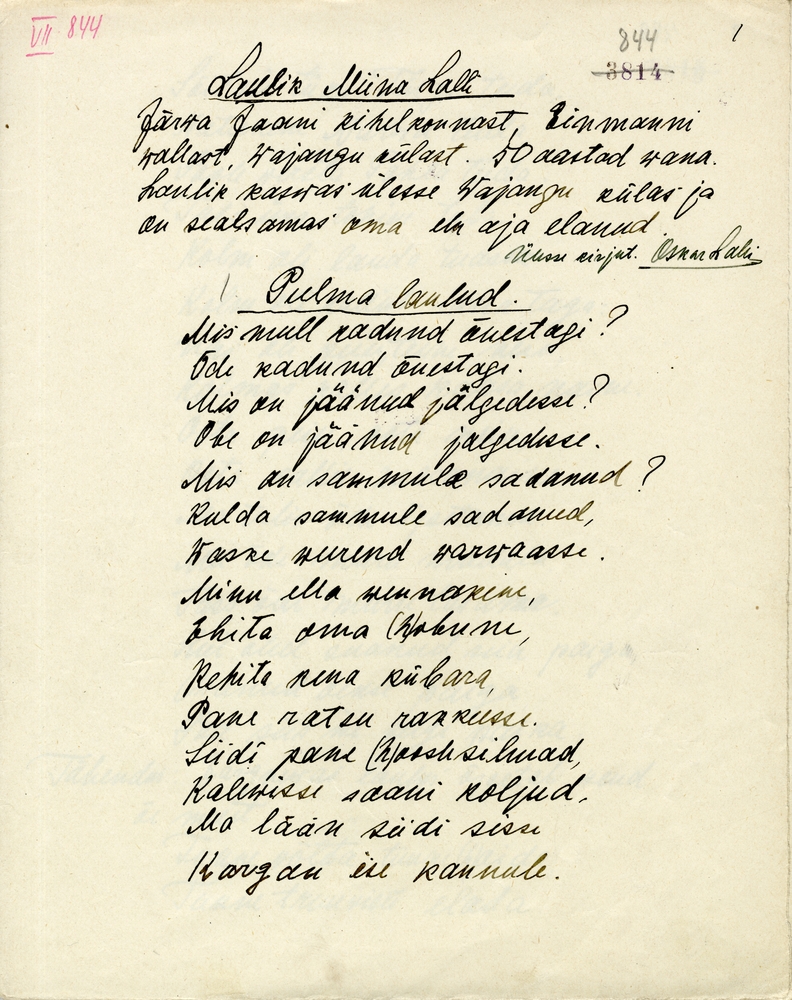 VII 844
844
1
3814
Laulik Miina Lalli
Järwa Jaani kihelkonnast, Einmanni
wallast, Wajangu külast. 50 aastad wana.
Laulik kaswas ülesse Wajangu külas ja
on sealsamas oma elu aja elanud.
Ülesse kirjut. Oskar Lalli
Pulma laulud.
Mis mull kadund õuestagi?
Õde kadund õuestagi.
Mis on jäänud jälgedesse?
Obe on jäänud jalgedesse.
Mis on sammule sadanud?
Kulda sammule sadanud,
Waske weerend warwaasse.
Minu ella wennakene,
Ehita oma (h)obune,
Rehita kena kübara,
Pane ratsu rakkesse.
Siidi pane (h)ooshsilmad,
Kalewisse saani koljud,
Ma lään siidi sisse
Kargan ise kannule.